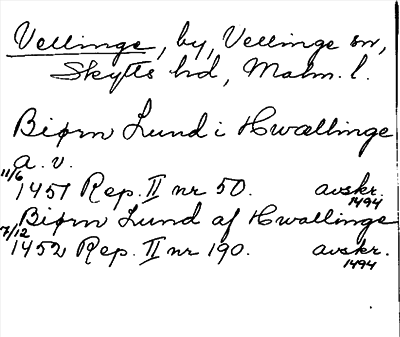 Vellinge, by, Vellinge sn,
Skytts hd, Malm. l.
Biørn Lund i Hwællinge
a. v.
11/6 1451 Rep. II nr 50. avskr. 1494
Biørn Lund af Hwallinge
7/12 1452 Rep. II nr 190. avskr. 1494